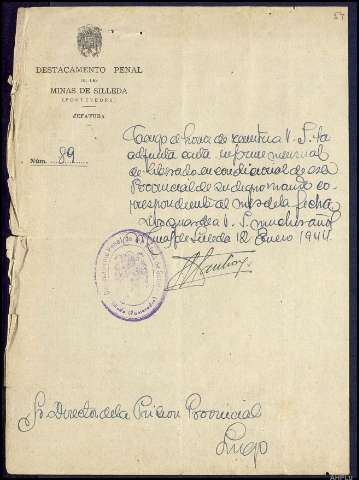 57
DESTACAMENTO PENAL
DE LAS
MINAS DE SILLEDA
(PONTEVEDRA)
JEFATURA
Núm. 89
Tengo el honor de remitir a V. S. la
adjunta carta informe mensual
de liberado en condicional de esa
Provincial de su digno mando co-
rrespondiente al mes de la fecha
Dios guarde a V. S. muchos años
Minas de Silleda 12 Enero 1944
Sr. Director de la Prision Provincial
Lugo
AHPLU